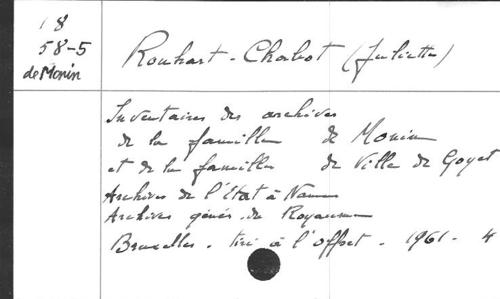 18
58-5
de Monin
Rouhart-Chabot (Juliette)
Inventaires des archives
de la famille de Monin
et de la famille de Ville de Goyet
Archives de l'Etat à Namur
Archives génér. du Royaume
Bruxelles. tiré à l'offset. 1961. 4